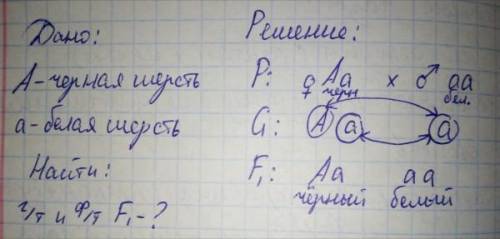 Дано:
А - черная шерсть
а - белая шерсть
Найти:
г/т и ф/т F₁ - ?
Решение:
P: ♀ Аа × ♂ аа
черн бел.
G: А а а
F₁: Аа аа
чёрный белый